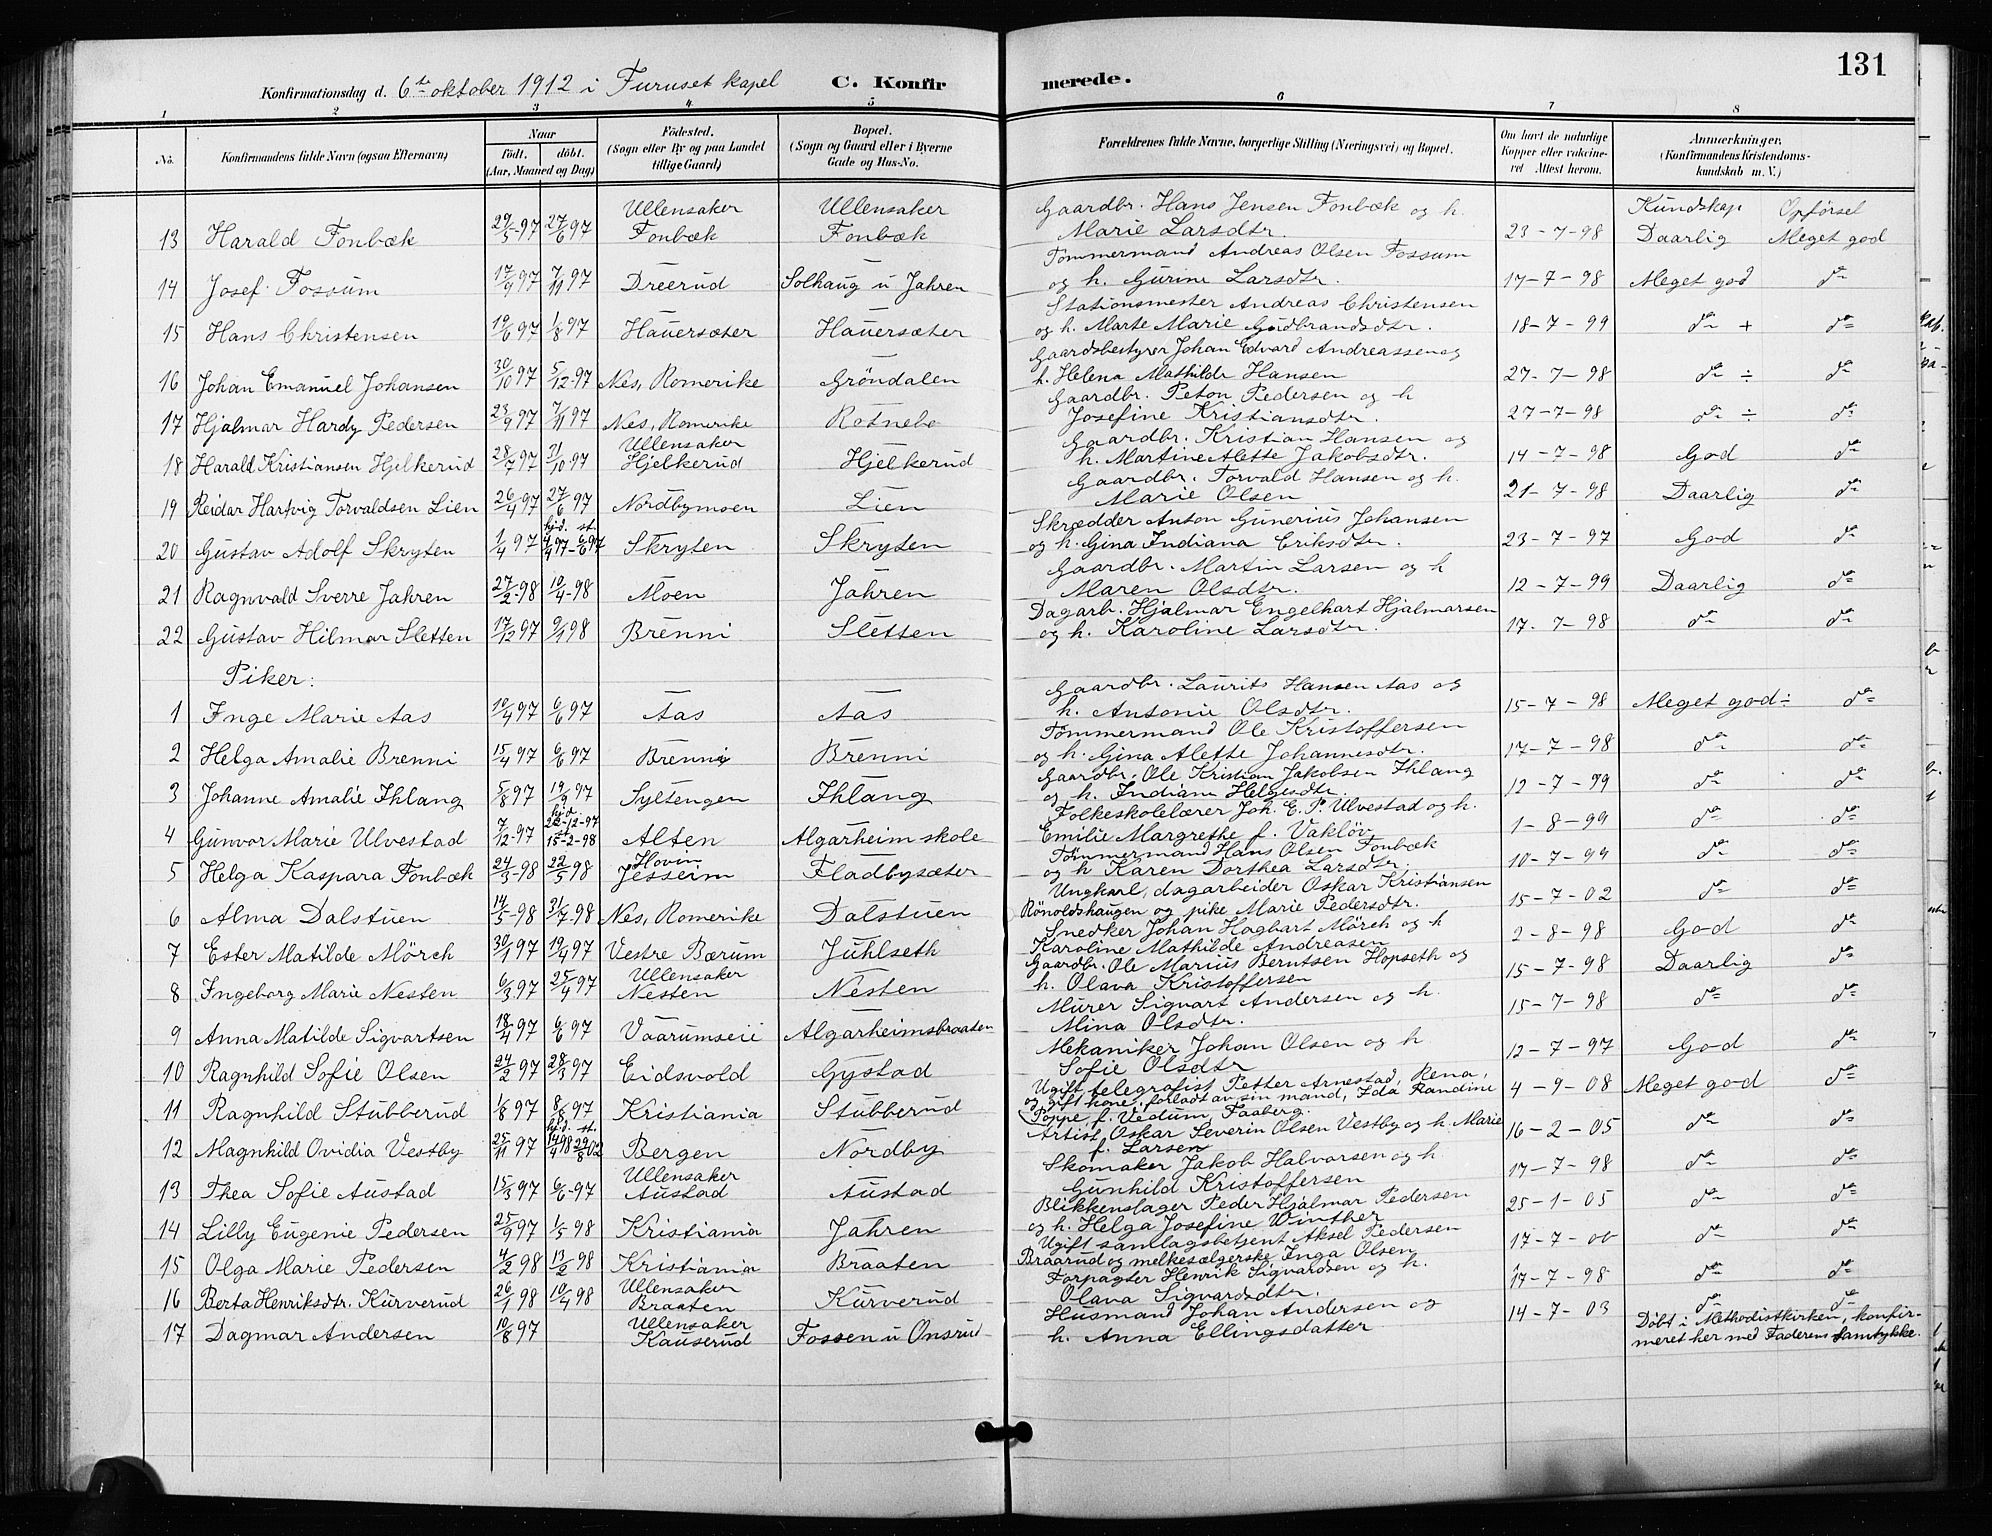 131
Konfirmationsdag d. 6te oktober 1912 i Furuset kapel C. Konfirmerede.
1 2 3 4 5 6 7 8
No. Konfirmandens fulde Navn (ogsaa Efternavn) Naar født. døbt. (Aar, Maaned og Dag) Födested. (Sogn eller By og paa Landet tillige Gaard) Bopæl. (Sogn og Gaard eller i Byerne Gade og Hus-No. Forældrenes fulde Navne, borgerlige Stilling (Næringsvei) og Bopæl. Om havt de naturlige Kopper eller vakcineret Attest herom. Anmærkninger. (Konfirmandens Kristendomskundskab m. V.)
Ullensaker Ullensaker Gaardbr. Hans Jensen Fonbæk og h. Kundskap Opførsel
13 Harald Fonbæk 29/5-97 27/6 97 Fonbæk Fonbæk Marie Larsdtr. 23-7-98 Daarlig Meget god
Tömmermand Andreas Olsen Fossum
14 Josef Fossum 17/9 97 7/11 97 Dreerud Solhaug u Jahren og h. Gurine Larsdtr. 17-7-98 Meget god do
Stationsmester Andreas Christensen
15 Hans Christensen 19/6 97 1/8 97 Hauersæter Hauersæter og h. Marte Marie Gudbrandsdtr. 18-7-99 do + do
Gaardsbestyrer Johan Edvard Andreassen og
16 Johan Emanuel Johansen 30/10 97 5/12-97 Nes, Romerike Gröndalen h. Helena Mathilde Hansen 27-7-98 do ÷ do
Gaardbr. Peton Pedersen og h
17 Hjalmar Hardy Pedersen 23/9 97 7/11 97 Nes, Romerike Rotnebo Josefine Kristiansdtr. 27-7-98 do ÷ do
Ullensaker Gaardbr. Kristian Hansen og
18 Harald Kristiansen Hjelkerud 28/7 97 31/10 97 Hjelkerud Hjelkerud h. Martine Alette Jakobsdtr. 14-7-98 God do
Gaardbr. Torvald Hansen og h.
19 Reidar Hartvig Torvaldsen Lien 26/4 97 27/6 97 Nordbymoen Lien Marie Olsen 21-7-98 Daarlig do
hjd. st. Skrædder Anton Gunerius Johansen
20 Gustav Adolf Skryten 1/4 97 4/4 97-6/6 97 Skryten Skryten og h. Gina Indiana Eriksdtr. 23-7-97 God do
Gaardbr. Martin Larsen og h
21 Ragnvald Sverre Jahren 27/2-98 10/4-98 Moen Jahren Maren Olsdtr. 12-7-99 Daarlig do
Dagarb. Hjalmar Engelhart Hjalmarsen
22 Gustav Hilmar Sletten 17/12 97 9/1 98 Brenni Sletten og h. Karoline Larsdtr. 17-7-98 do do
Piker:
Gaardbr. Laurits Hansen Aas og
1 Inge Marie Aas 10/4 97 6/6 97 Aas Aas h. Antonie Olsdtr. 15-7-98 Meget god ÷ do
Tömmermand Ole Kristoffersen
2 Helga Amalie Brenni 15/4 97 6/6 97 Brenni Brenni og h. Gina Alette Johannesdtr. 17-7-98 do do
Gaardbr. Ole Kristian Jakobsen Ihlang
3 Johanne Amalie Ihlang 5/8 97 19/9 97 Syltengen Ihlang og h. Indiane Helgesdtr. 12-7-99 do do
hjd. 22-12-97 Folkeskolelærer Joh. E. P. Ulvestad og h.
4 Gunvor Marie Ulvestad 7/12-97 st. 15-2-98 Alten Algarheim skole Emilie Margrethe f. Vakløv 1-8-99 do do
Hovin Tömmermand Hans Olsen Fonbæk
5 Helga Kaspara Fonbæk 24/3-98 22/5 98 Jesseim Fladbysæter og h Karen Dorthea Larsdtr. 10-7-99 do do
Ungkarl, dagarbeider Oskar Kristiansen
6 Alma Dalstuen 14/5-98 31/7-98 Nes, Romerike Dalstuen Rönoldshaugen og pike Marie Pedersdtr. 15-7-02 do do
Snedker Johan Hagbart Mörch og h
7 Ester Matilde Mörch 30/1 97 19/4 97 Vestre Bærum Juhlseth Karoline Mathilde Andreasen 2-8-98 God do
Ullensaker Gaardbr. Ole Marius Berntsen Hopseth og
8 Ingeborg Marie Nesten 6/3 97 25/4 97 Nesten Nesten h. Olava Kristoffersen 15-7-98 Daarlig do
Murer Sigvart Andersen og h.
9 Anna Matilde Sigvartsen 18/4 97 6/6 97 Vaarumseie Algarheimsbraaten Mina Olsdtr. 15-7-98 do do
Mekaniker Johan Olsen og h
10 Ragnhild Sofie Olsen 24/2 97 28/3 97 Eidsvold Gystad Sofie Olsdtr 12-7-97 God do
Ugift telegrafist Petter Arnestad, Rena,
og gift kone, forladt av sin mand, Ida Randine
11 Ragnhild Stubberud 1/8 97 8/8 97 Kristiania Stubberud Poppe, f. Vedum, Faaberg. 4-9-08 Meget god do
hjd. st. Artist Oskar Severin Olsen Vestby og h. Marie
12 Magnhild Ovidia Vestby 25/11 97 14/4 98 29/8 02 Bergen Nordby f. Larsen 16-2-05 do do
Ullensaker Skomaker Jakob Halvorsen og h.
13 Thea Sofie Austad 15/3 97 6/6-97 Austad Austad Gunhild Kristoffersen 17-7-98 do do
Blikkenslager Peder Hjalmar Pedersen
14 Lilly Eugenie Pedersen 25/9 97 1/5 98 Kristiania Jahren og h. Helga Josefine Winther 25-1-05 do do
Ugift samlagsbetjent Aksel Pedersen
15 Olga Marie Pedersen 4/2 98 13/2-98 Kristiania Braaten Braarud og melkesælgerske Inga Olsen 17-7-00 do do
Ullensaker Forpagter Henrik Sigvardsen og h.
16 Berta Henriksdtr. Kurverud 26/1 98 10/4 98 Braaten Kurverud Olava Sigvardsdtr. 17-7-98 do do
Ullensaker Husmand Johan Andersen og Døbt i Methodistkirken, konfir-
17 Dagmar Andersen 10/8 97 Kauserud Fossen u Onsrud h. Anna Ellingsdatter 14-7-03 meret her med Faderens Samtykke.